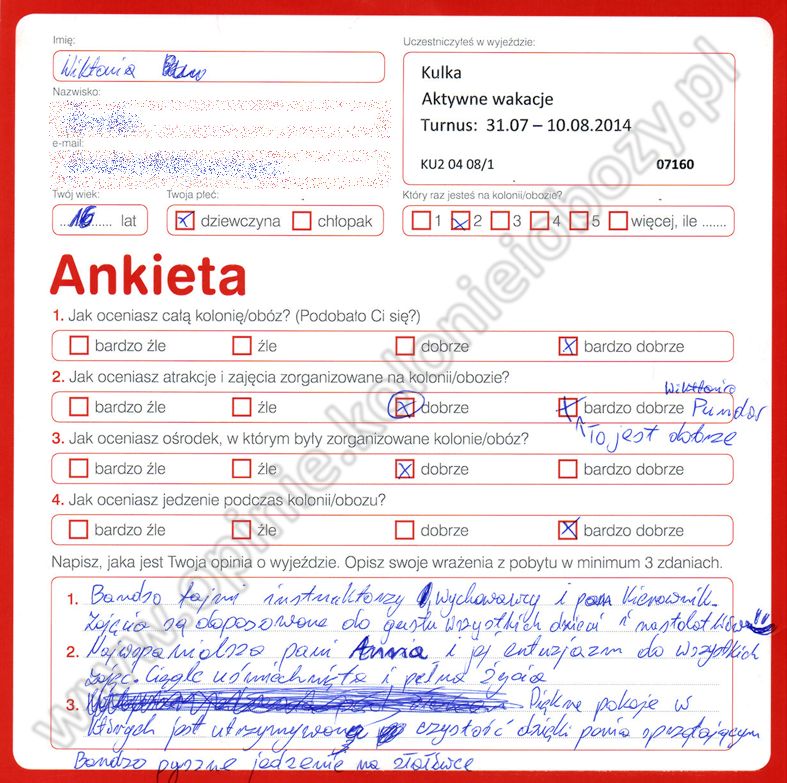 Imię:
Wiktoria
Uczestniczyłeś w wyjeździe:
Kulka
Aktywne wakacje
Turnus: 31.07 – 10.08.2014
KU2 04 08/1 07160
Nazwisko:
e-mail:
Twój wiek:
16 lat
Twoja płeć:
dziewczyna chłopak
Który raz jesteś na kolonii/obozie?
1 2 3 4 5 więcej, ile .......
Ankieta
1. Jak oceniasz całą kolonię/obóz? (Podobało Ci się?)
bardzo źle źle dobrze bardzo dobrze
2. Jak oceniasz atrakcje i zajęcia zorganizowane na kolonii/obozie?
Wiktoria
bardzo źle źle dobrze bardzo dobrze
To jest dobrze
3. Jak oceniasz ośrodek, w którym były zorganizowane kolonie/obóz?
bardzo źle źle dobrze bardzo dobrze
4. Jak oceniasz jedzenie podczas kolonii/obozu?
bardzo źle źle dobrze bardzo dobrze
Napisz, jaka jest Twoja opinia o wyjeździe. Opisz swoje wrażenia z pobytu w minimum 3 zdaniach.
1. Bardzo fajni instruktorzy, wychowawcy i pan Kierownik.
Zajęcia są doposowane do gustu wszystkich dzieci i nastolatków
2. Najwspanialsza pani Anna i jej entuzjazm do wszystkich
zajęć. Ciągle uśmiechnięta i pełna życia
3. Piękne pokoje w
których jest utrzymywana czystość dzięki panią sprzątającym
Bardzo pyszne jedzenie na stołówce
www.opinie.kolonieiobozy.pl